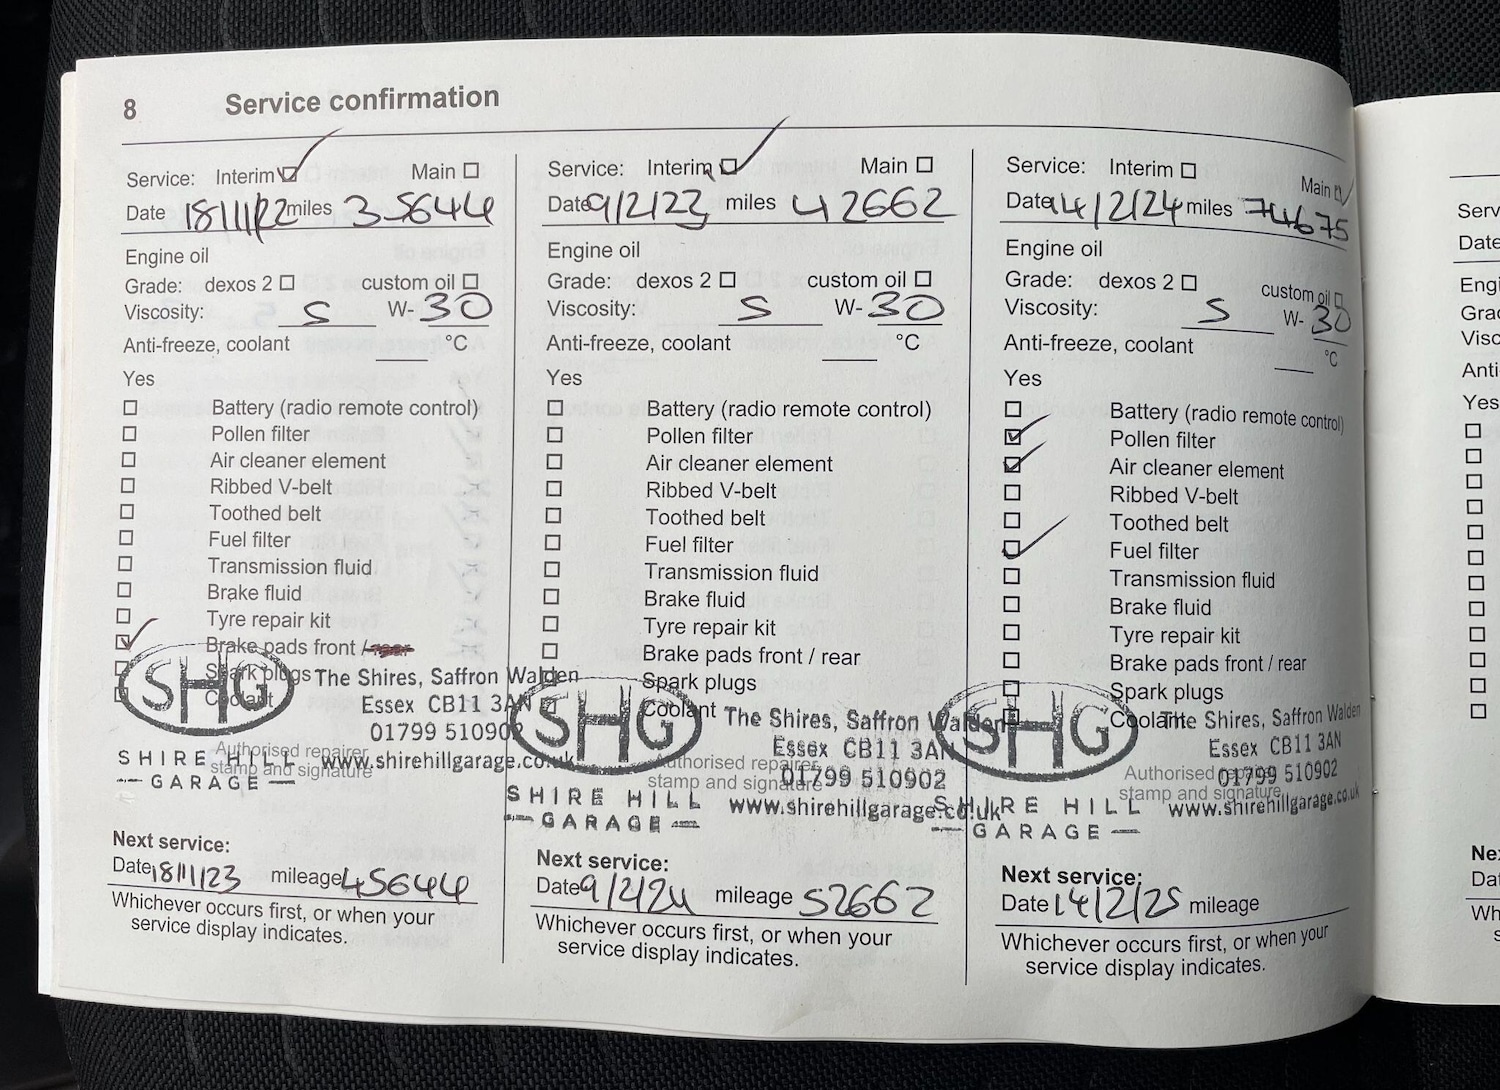 8 Service confirmation
Service: Interim ☑ Main ☐
Date 18/11/22 miles 35644
Engine oil
Grade: dexos 2 ☐ custom oil ☐
Viscosity: 5 W- 30
Anti-freeze, coolant °C
Yes
☐ Battery (radio remote control)
☐ Pollen filter
☐ Air cleaner element
☐ Ribbed V-belt
☐ Toothed belt
☐ Fuel filter
☐ Transmission fluid
☐ Brake fluid
☐ Tyre repair kit
☑ Brake pads front /
☐ Spark plugs
☐ Coolant
SHG
SHIRE HILL
GARAGE
The Shires, Saffron Walden
Essex CB11 3AN
01799 510902
www.shirehillgarage.co.uk
Authorised repairer
stamp and signature
Next service:
Date 18/11/23 mileage 45644
Whichever occurs first, or when your
service display indicates.
Service: Interim ☑ Main ☐
Date 9/2/23 miles 42662
Engine oil
Grade: dexos 2 ☐ custom oil ☐
Viscosity: 5 W- 30
Anti-freeze, coolant °C
Yes
☐ Battery (radio remote control)
☐ Pollen filter
☐ Air cleaner element
☐ Ribbed V-belt
☐ Toothed belt
☐ Fuel filter
☐ Transmission fluid
☐ Brake fluid
☐ Tyre repair kit
☐ Brake pads front / rear
☐ Spark plugs
☐ Coolant
SHG
SHIRE HILL
GARAGE
The Shires, Saffron Walden
Essex CB11 3AN
01799 510902
www.shirehillgarage.co.uk
Authorised repairer
stamp and signature
Next service:
Date 9/2/24 mileage 52662
Whichever occurs first, or when your
service display indicates.
Service: Interim ☐ Main ☑
Date 14/2/24 miles 74675
Engine oil
Grade: dexos 2 ☐ custom oil ☐
Viscosity: 5 W- 30
Anti-freeze, coolant °C
Yes
☐ Battery (radio remote control)
☑ Pollen filter
☑ Air cleaner element
☐ Ribbed V-belt
☐ Toothed belt
☑ Fuel filter
☐ Transmission fluid
☐ Brake fluid
☐ Tyre repair kit
☐ Brake pads front / rear
☐ Spark plugs
☐ Coolant
SHG
SHIRE HILL
GARAGE
The Shires, Saffron Walden
Essex CB11 3AN
01799 510902
www.shirehillgarage.co.uk
Authorised repairer
stamp and signature
Next service:
Date 14/2/25 mileage
Whichever occurs first, or when your
service display indicates.
Date
Anti
Yes